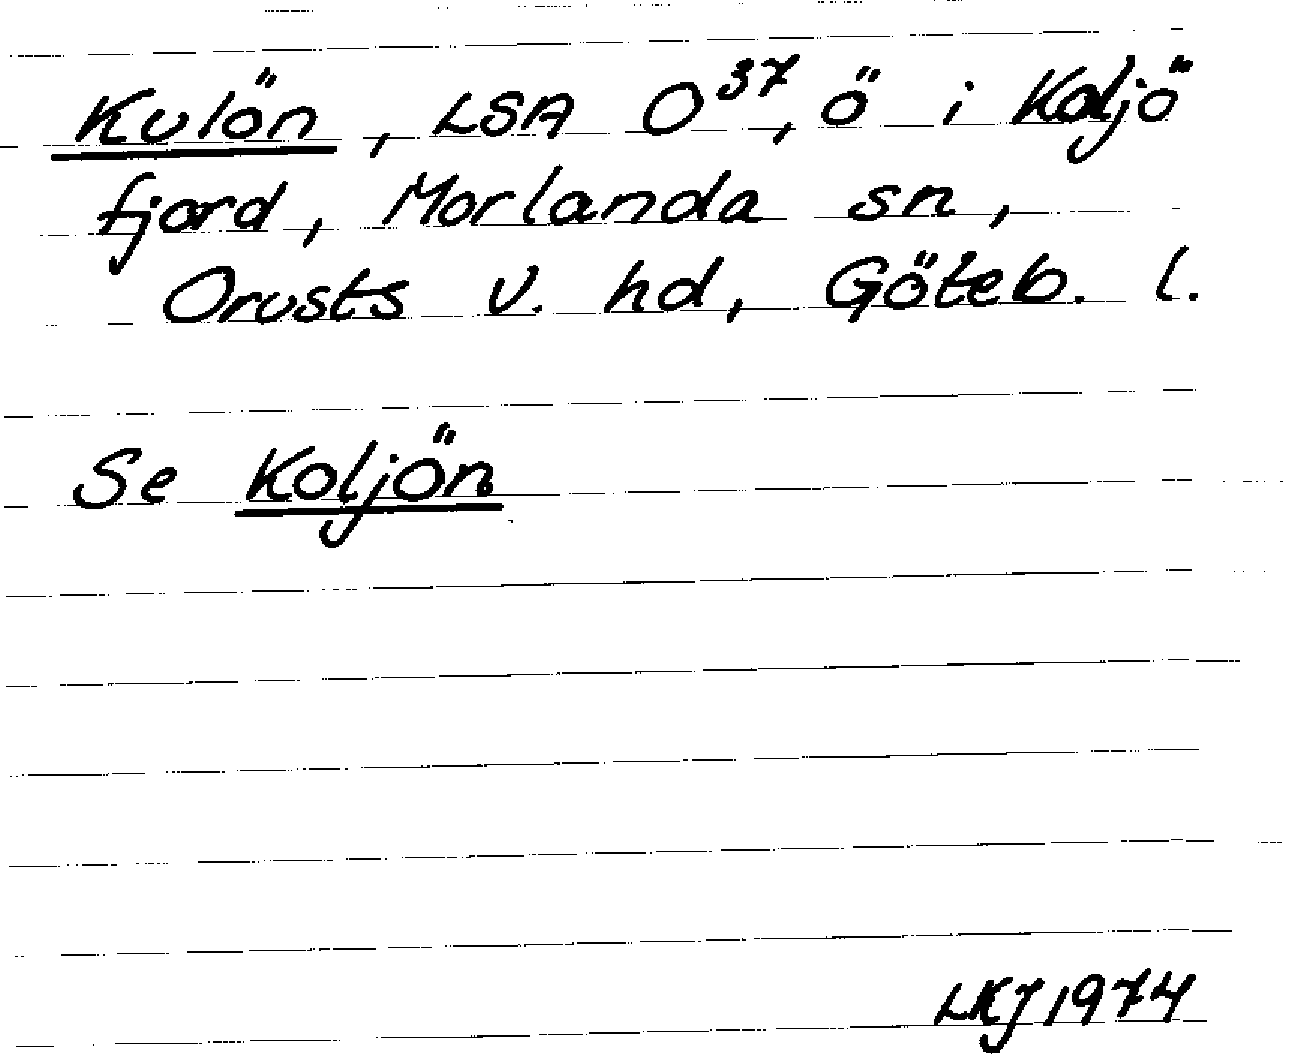 Kulön, LSA O37, ö i Koljö
fjord, Morlanda sn,
Orusts v. hd, Göteb. l.
Se Koljön
LKJ 1974